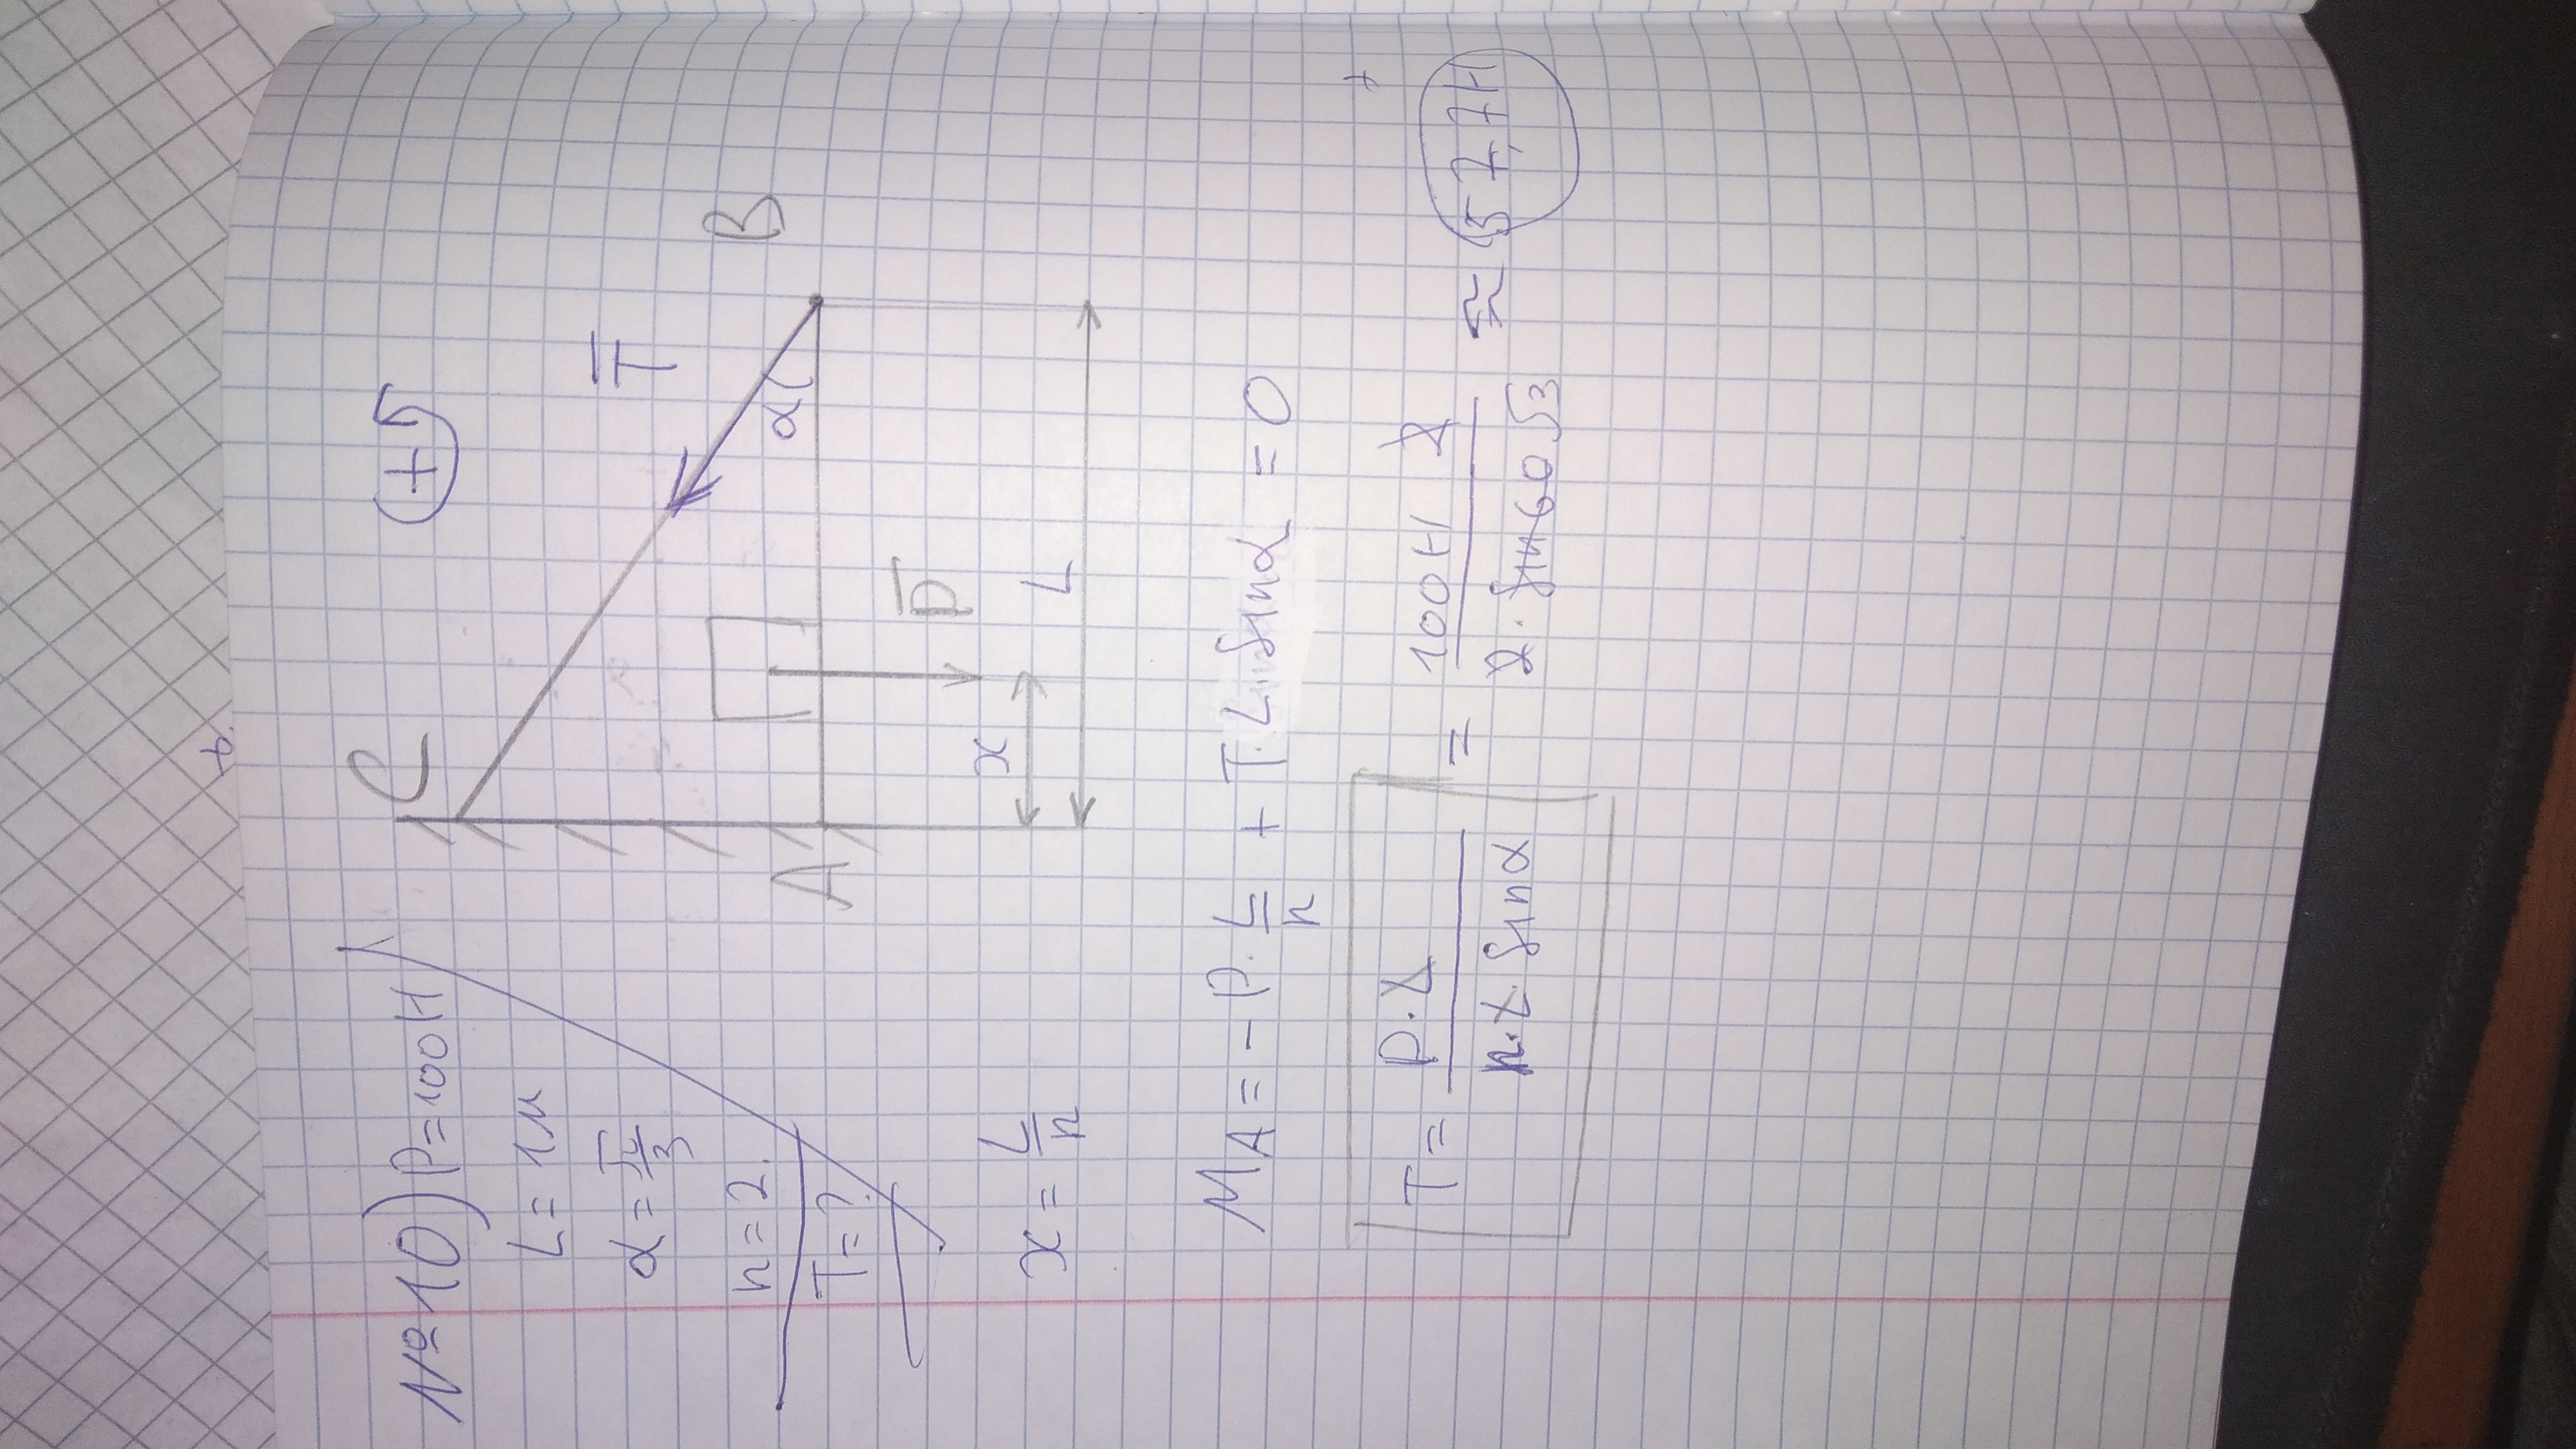 №10) P=100Н
L=1м
α=π/3
n=2.
T=?
x=L/n
C
+
T
B
α
A
P
x
L
M_A=-P·L/n+T·L·sinα=0
T=P·L/n·L·sinα=100Н 2/2·sin60√3≈57,7Н